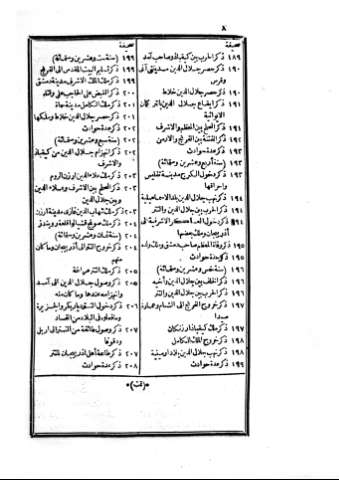 ٨
صحيفة
١٨٩ ذكر الحرب بين كيقباذ وصاحب آمد
١٩٠ ذكر حصر جلال الدين مدينتى آنى
وقرس
١٩٠ ذكر حصر جلال الدين خلاط
١٩١ ذكر ايقاع جلال الدين بالتركمان
الايوانية
١٩١ ذكر الصلح بين المعظم والاشرف
١٩١ ذكر الفتنة بين الفرنج والارمن
١٩٣ ذكر عدة حوادث
١٩٣ (سنة أربع وعشرين وستمائة)
١٩٣ ذكر دخول الكرج مدينة تفليس
واحراقها
١٩٤ ذكر نهب جلال الدين بلد الاسماعيلية
١٩٤ ذكر الحرب بين جلال الدين والتتر
١٩٤ ذكر دخول العساكر الاشرفية الى
أذربيجان وملك بعضها
١٩٥ ذكر وفاة المعظم صاحب دمشق وملك ولده
١٩٥ ذكر عدة حوادث
١٩٦ (سنة خمس وعشرين وستمائة)
١٩٦ ذكر الخلف بين جلال الدين وأخيه
١٩٦ ذكر الحرب بين جلال الدين والتتر
١٩٧ ذكر خروج الفرنج الى الشام وعمارة
صيدا
١٩٧ ذكر ملك كيقباذ ارزنكان
١٩٨ ذكر خروج الملك الكامل
١٩٨ ذكر نهب جلال الدين بلاد ارمينية
١٩٩ ذكر عدة حوادث
صحيفة
١٩٩ (سنة ست وعشرين وستمائة)
١٩٩ ذكر تسليم البيت المقدس الى الفرنج
١٩٩ ذكر ملك الملك الاشرف مدينة دمشق
٢٠٠ ذكر القبض على الحاجب على وقتله
٢٠١ ذكر ملك الكامل مدينة حماة
٢٠١ ذكر حصر جلال الدين خلاط وملكها
٢٠٢ ذكر عدة حوادث
٢٠٢ (سنة سبع وعشرين وستمائة)
٢٠٢ ذكر انهزام جلال الدين من كيقباذ
والاشرف
٢٠٣ ذكر ملك علاء الدين ارزن الروم
٢٠٣ ذكر الصلح بين الاشرف وعلاء الدين
وبين جلال الدين
٢٠٣ ذكر ملك شهاب الدين غازى مدينة ارزن
٢٠٤ ذكر ملك صونج قشيالوا قلعة رويندز
٢٠٤ (سنة ثمان وعشرين وستمائة)
٢٠٤ ذكر خروج التتر الى أذربيجان وما كان
منهم
٢٠٥ ذكر ملك التتر مراغة
٢٠٥ ذكر وصول جلال الدين الى آمد
وانهزامه عندها وما كان منه
٢٠٦ ذكر دخول التتر ديار بكر والجزيرة
وما فعلوه فى البلاد من الفساد
٢٠٧ ذكر وصول طائفة من التتر الى اربل
ودقوقا
٢٠٧ ذكر طاعة أهل أذربيجان للتتر
٢٠٨ ذكر عدة حوادث
*(تمت)*